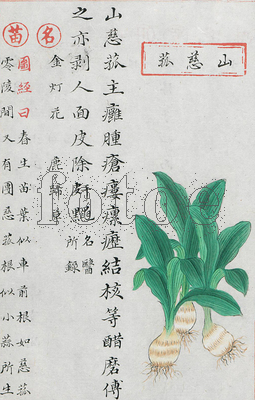 山慈菰
山慈菰主癰腫瘡瘻瘰癧結核等醋磨傅
之亦剥人面皮除皯䵟名醫
所錄
名
金灯花 鹿蹄草
苗
圖經曰春生苗葉似車前根如慈菰
零陵間又有團慈菰根似小蒜所生
fotoe